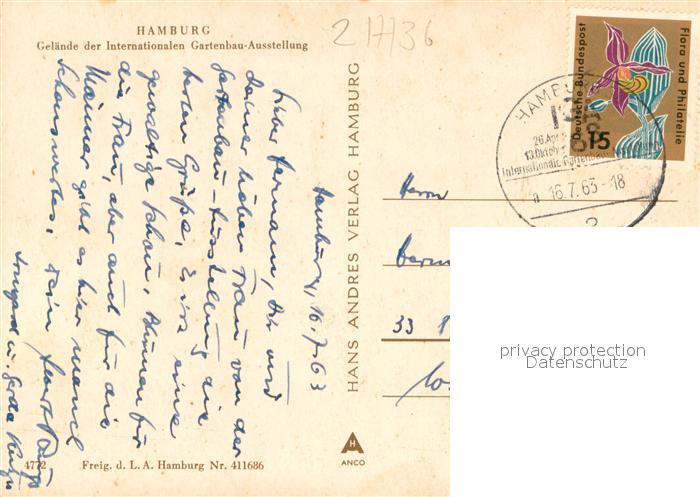 HAMBURG
Gelände der Internationalen Gartenbau-Ausstellung
217736
Hamburg, 16.7.63
Lieber Hermann, Dir und
Deiner lieben Frau von der
Gartenbau-Ausstellung die
besten Grüße. Eine
gewaltige Schau, Blumen für
die Frau, aber auch für die
Männer gibt es hier manch
Sehenswertes. Dein
u. Gerda
HANS ANDRES VERLAG, HAMBURG
H
ANCO
4772 Freig. d. L. A. Hamburg Nr. 411686
Deutsche Bundespost
Flora und Philatelie
15
HAMBURG
26.Apr.
13.Oktob
Internationale Gartenbau
a 16.7.63-18
2
Herrn
33
privacy protection
Datenschutz